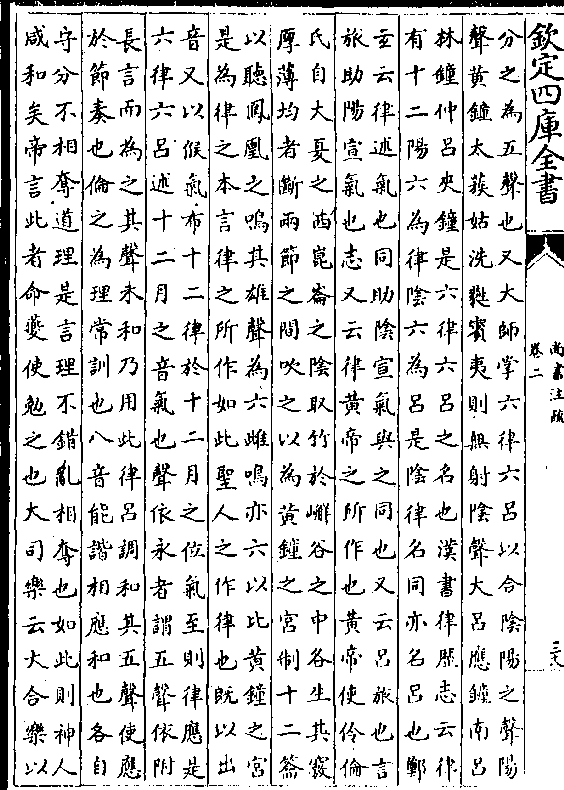 欽定四庫全書
尚書注疏
卷二
分之為五聲也又大師掌六律六呂以合陰陽之聲陽
聲黃鐘太蔟姑洗蕤賓夷則無射陰聲大呂應鐘南呂
林鐘仲呂夾鐘是六律六呂之名也漢書律歷志云律
有十二陽六為律陰六為呂是陰律名同亦名呂也鄭
玄云律述氣也同助陰宣氣與之同也又云呂旅也言
旅助陽宣氣也志又云律黃帝之所作也黃帝使伶倫
氏自大夏之西崑崙之陰取竹於嶰谷之中各生其竅
厚薄均者斷兩節之間吹之以為黃鐘之宮制十二筩
以聽鳳凰之鳴其雄聲為六雌鳴亦六以比黃鐘之宮
是為律之本言律之所作如此聖人之作律也既以出
音又以候氣布十二律於十二月之位氣至則律應是
六律六呂述十二月之音氣也聲依永者謂五聲依附
長言而為之其聲未和乃用此律呂調和其五聲使應
於節奏也倫之為理常訓也八音能諧相應和也各自
守分不相奪道理是言理不錯亂相奪也如此則神人
咸和矣帝言此者命夔使勉之也大司樂云大合樂以